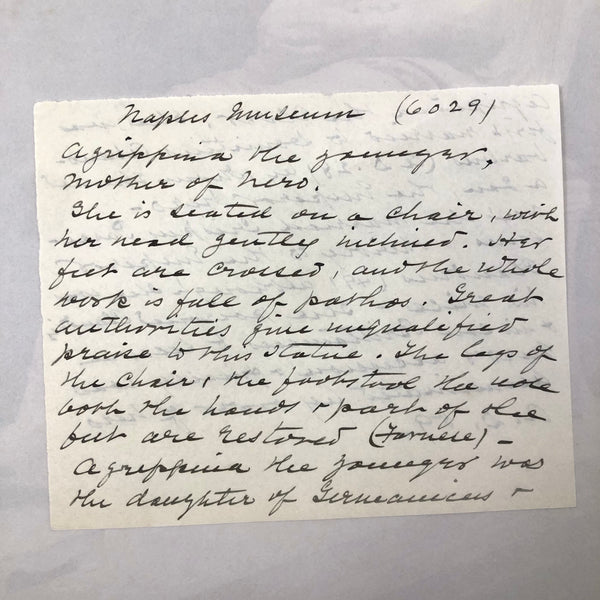 Naples Museum (6029)
Agrippina the younger,
Mother of Nero.
She is seated on a chair, with
her head gently inclined. Her
feet are crossed, and the whole
work is full of pathos. Great
authorities give unqualified
praise to this statue. The legs of
the chair, the footstool the nose
both the hands + part of the
feet are restored (Farnese) -
Agrippina the younger was
the daughter of Germanicus +